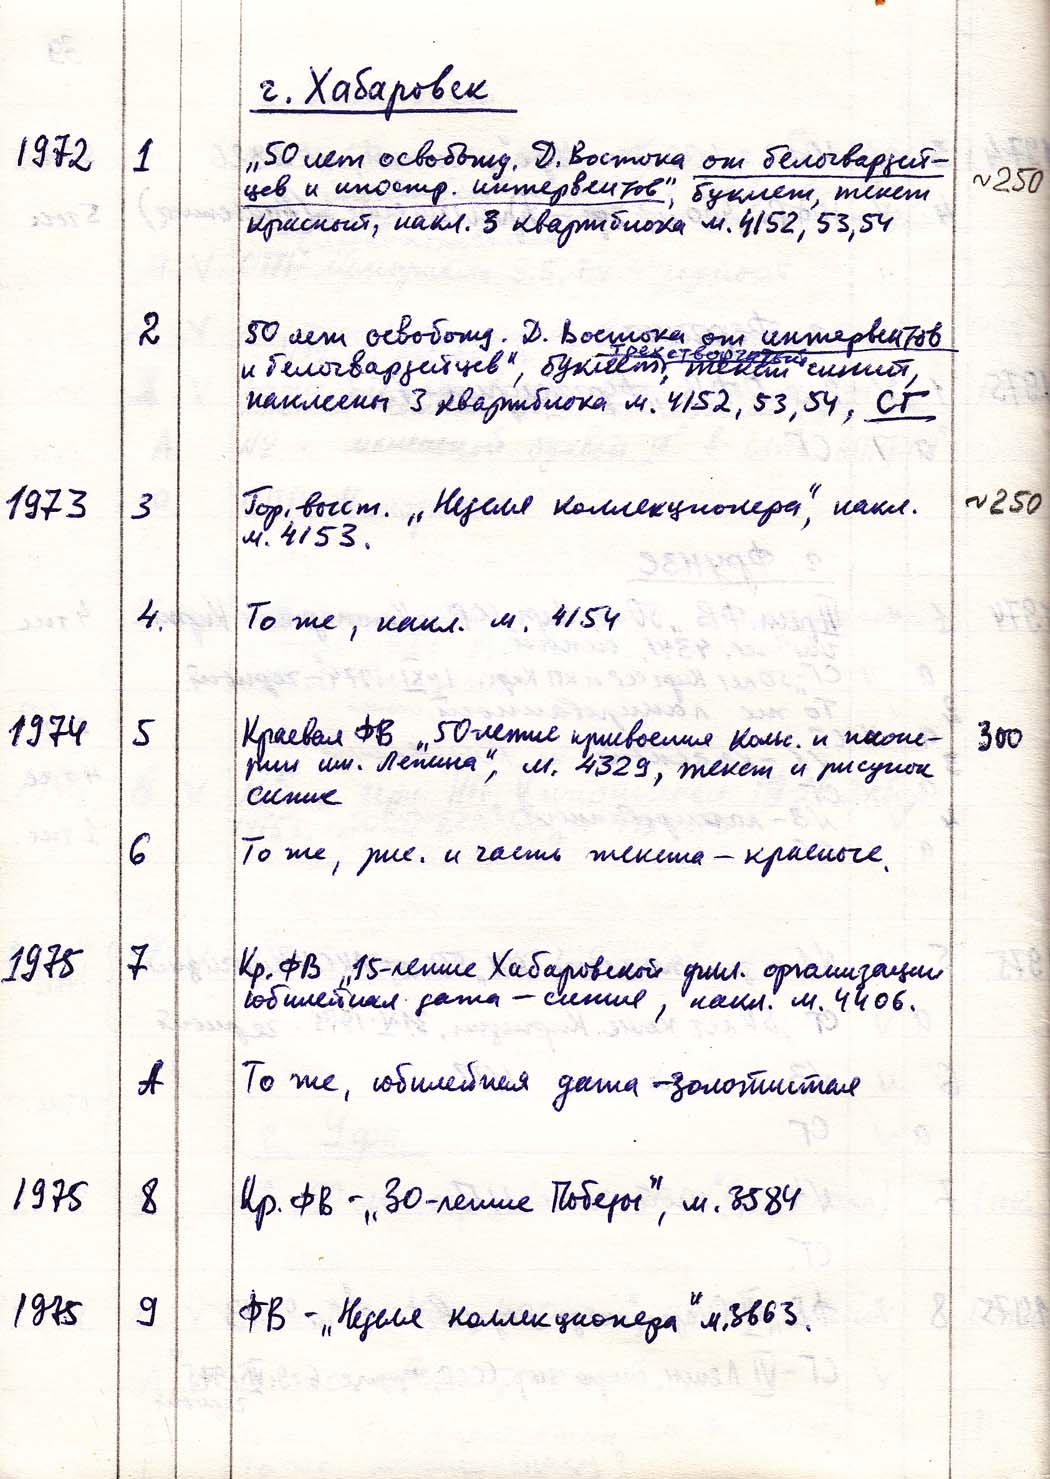 г. Хабаровск
1972 1 „50 лет освобожд. Д. Востока от белогвардей-
цев и иностр. интервентов", буклет, текст ~250
красный, накл. 3 квартблока м. 4152, 53, 54
2 50 лет освобожд. Д. Востока от интервентов
и белогвардейцев", буклет, текст синий,
трехстворчатый
наклеены 3 квартблока м. 4152, 53, 54, СГ
1973 3 Гор. выст. „Неделя коллекционера", накл. ~250
м. 4153.
4. То же, накл. м. 4154
1974 5 Краевая ФВ „50-летие присвоения комс. и пионе- 300
рии им. Ленина", м. 4329, текст и рисунок
синие
6 То же, рис. и часть текста – красные.
1975 7 Кр. ФВ „15-летие Хабаровской фил. организации
юбилейная дата – синяя, накл. м. 4406.
А То же, юбилейная дата – золотистая
1975 8 Кр. ФВ – „30-летие Победы", м. 3584
1975 9 ФВ – „Неделя коллекционера" м. 3663.